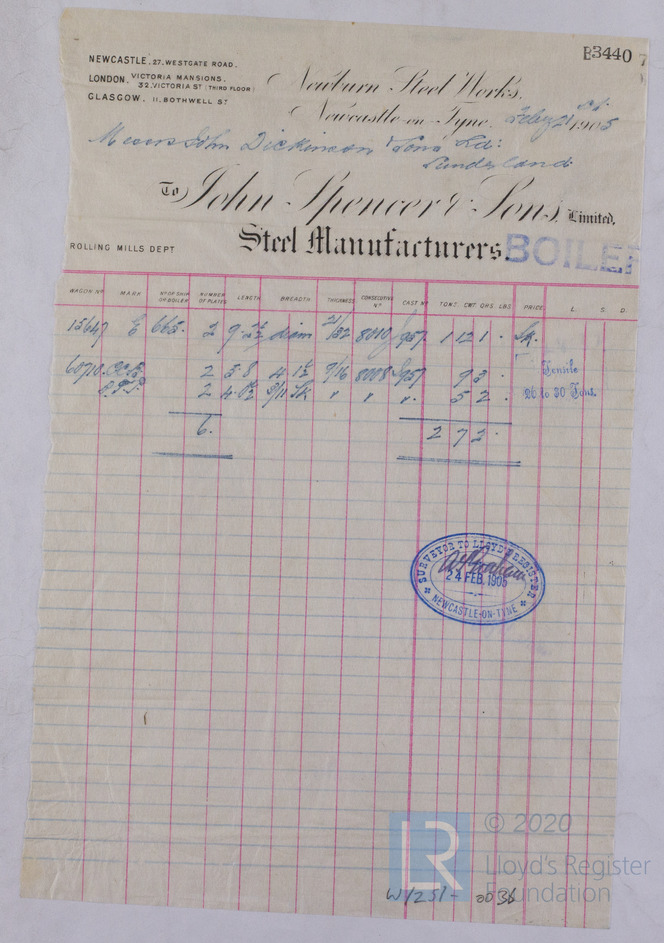 B3440 7
NEWCASTLE. 27. WESTGATE ROAD.
LONDON. VICTORIA MANSIONS.
32. VICTORIA ST (THIRD FLOOR)
GLASGOW. 11. BOTHWELL ST
Newburn Steel Works.
Newcastle-on-Tyne, Feby 21st 1905
Messrs John Dickinson & Sons Ld:
Sunderland
To John Spencer & Sons, Limited.
Steel Manufacturers.
BOILER
ROLLING MILLS DEPT
WAGON Nº MARK Nº OF SHIP OR BOILER NUMBER OF PLATES LENGTH BREADTH THICKNESS CONSECUTIVE Nº CAST Nº TONS CWT QRS LBS PRICE L. S. D.
15647 E 665. 2 diam 21/32 8010 957 1 12 1 .
60710. 2 5.8 9/16 8008 957 9 3 .
2 " " " 5 2 .
6. 2 7 2 .
Tensile
26 to 30 Tons.
SURVEYOR TO LLOYD'S REGISTER
24 FEB. 1905
NEWCASTLE-ON-TYNE
© 2020
LR Lloyd's Register
Foundation
W1251- 0036